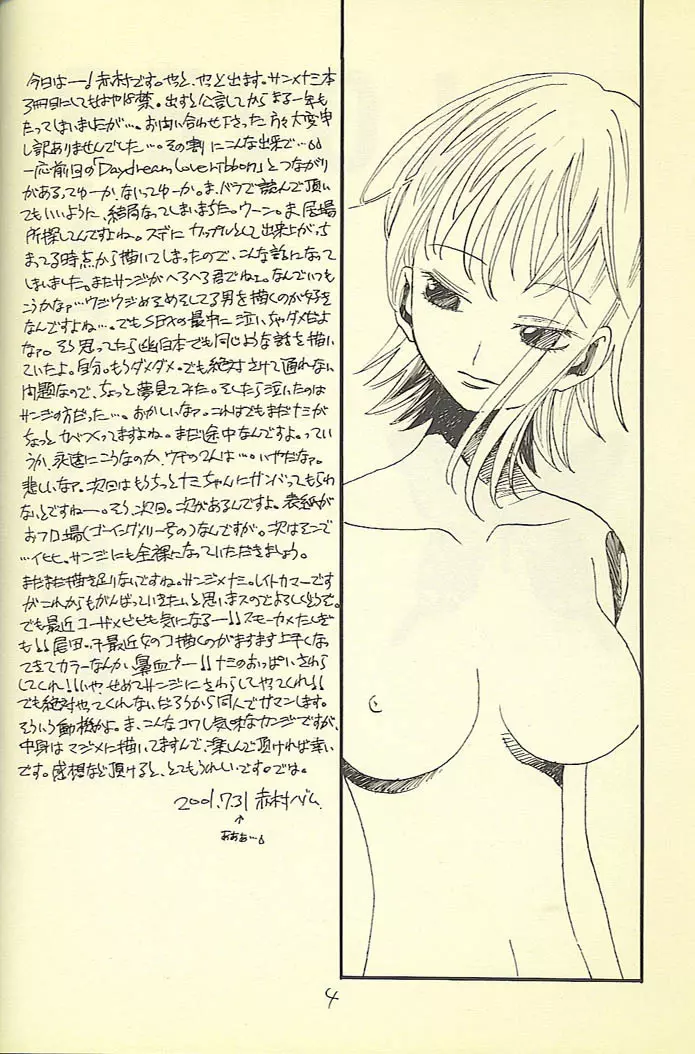 今日はーー♪赤村です。やっと、やっと出ます。サンメナミ本
3冊目にしてもはや18禁。出すと公言してからまる一年も
たってしまいましたが…。お問い合わせ下さった方々大変申
し訳ありませんでした…。その割にこんな出来で…♪♪
一応前回の「Daydream Loveribbon」とつながり
がある、てゆーか、ないってゆーか。ま、バラで読んで頂い
てもいいように、結局なってしまいまちた。ウーン。ま、居場
所探してんですよね。スデにカップルとして出来上がっち
まってる時点から描いてしまったので、こんな話になって
しまいました。またサンジがへろへろ君でねェ。なんでいつも
こうかなァ…ウジウジめそめそしてる男を描くのが好き
なんですよね…。でもSEXの最中に泣いちゃダメだよ
なァ。そう思ってたら幽白本でも同じような話を描い
ていたよ。自分。もうダメダメ。でも絶対さけて通れない
問題なので、ちょっと夢見てみた。そしたら泣いたのは
サンジの方だった…。おかしいなァ。これはでもまだナミが
ちょっとカベつくってますよね。まだ途中なんですよ。ってい
うか、永遠にこうなのか、ウチの2人は…。いやだなァ。
悲しいなァ。次回はもうちっとナミちゃんにガンバってもらわ
ないとですねー。そう、次回。次があるんですよ。表紙が
おフロ場(ゴーイングメリー号の)なんですが。次はそこで
…イヒヒ。サンジにも全裸になっていただきましょう。
まだまだ描き足りないですね。サンジ×ナミ。レイトカマーです
がこれからもがんばっていきたいと思いまスのでよろしくどうぞ。
でも最近コーザ×ビビも気になるー!!スモーカー×たしぎ
も!!尾田っチ最近女のコ描くのがますます上手くなっ
てきてカラーなんか、鼻血ブー!!ナミのおっぱいさわら
してくれ!!いや、せめてサンジにさわらしてやってくれ!!
でも絶対やってくれないだろうから同人でガマンします。
そういう動機かよ。ま、こんなコワレ気味なカンジですが、
中身はマジメに描いてますんで、楽しんで頂ければ幸い
です。感想など頂けると、とてもうれしいです。では。
2001.7.31 赤村
↑
あああ…♪
4